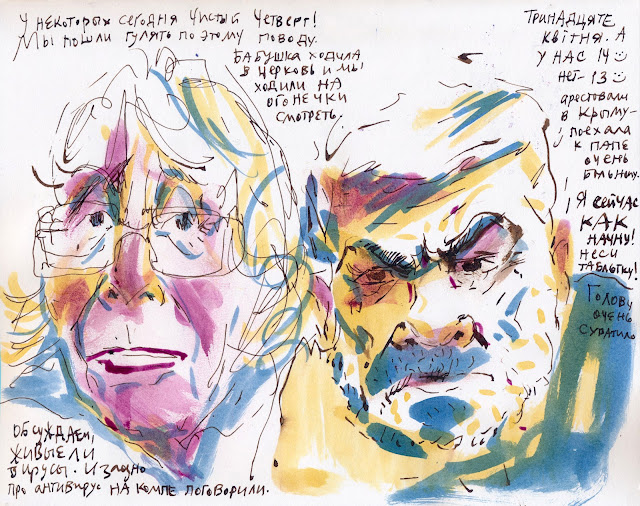 У НЕКОТОРЫХ СЕГОДНЯ ЧИСТЫЙ ЧЕТВЕРГ!
МЫ ПОШЛИ ГУЛЯТЬ ПО ЭТОМУ ПОВОДУ.
БАБУШКА ХОДИЛА
В ЦЕРКОВЬ И МЫ
ХОДИЛИ НА
ОГОНЕЧКИ
СМОТРЕТЬ.
ТРИНАДЦЯТЕ
КВІТНЯ. А
У НАС 14
НЕТ - 13
АРЕСТОВАЛИ
В КРЫМУ
ПОЕХАЛА
К ПАПЕ
ОЧЕНЬ
Я СЕЙЧАС
КАК
НАЧНУ!
НЕСИ
ТАБЛЕТКУ!
ГОЛОВУ
ОЧЕНЬ
СХВАТИЛО
ОБСУЖДАЕМ,
ЖИВЫЕ ЛИ
ВИРУСЫ. И ЗАОДНО
ПРО АНТИВИРУС НА КОМПЕ ПОГОВОРИЛИ.